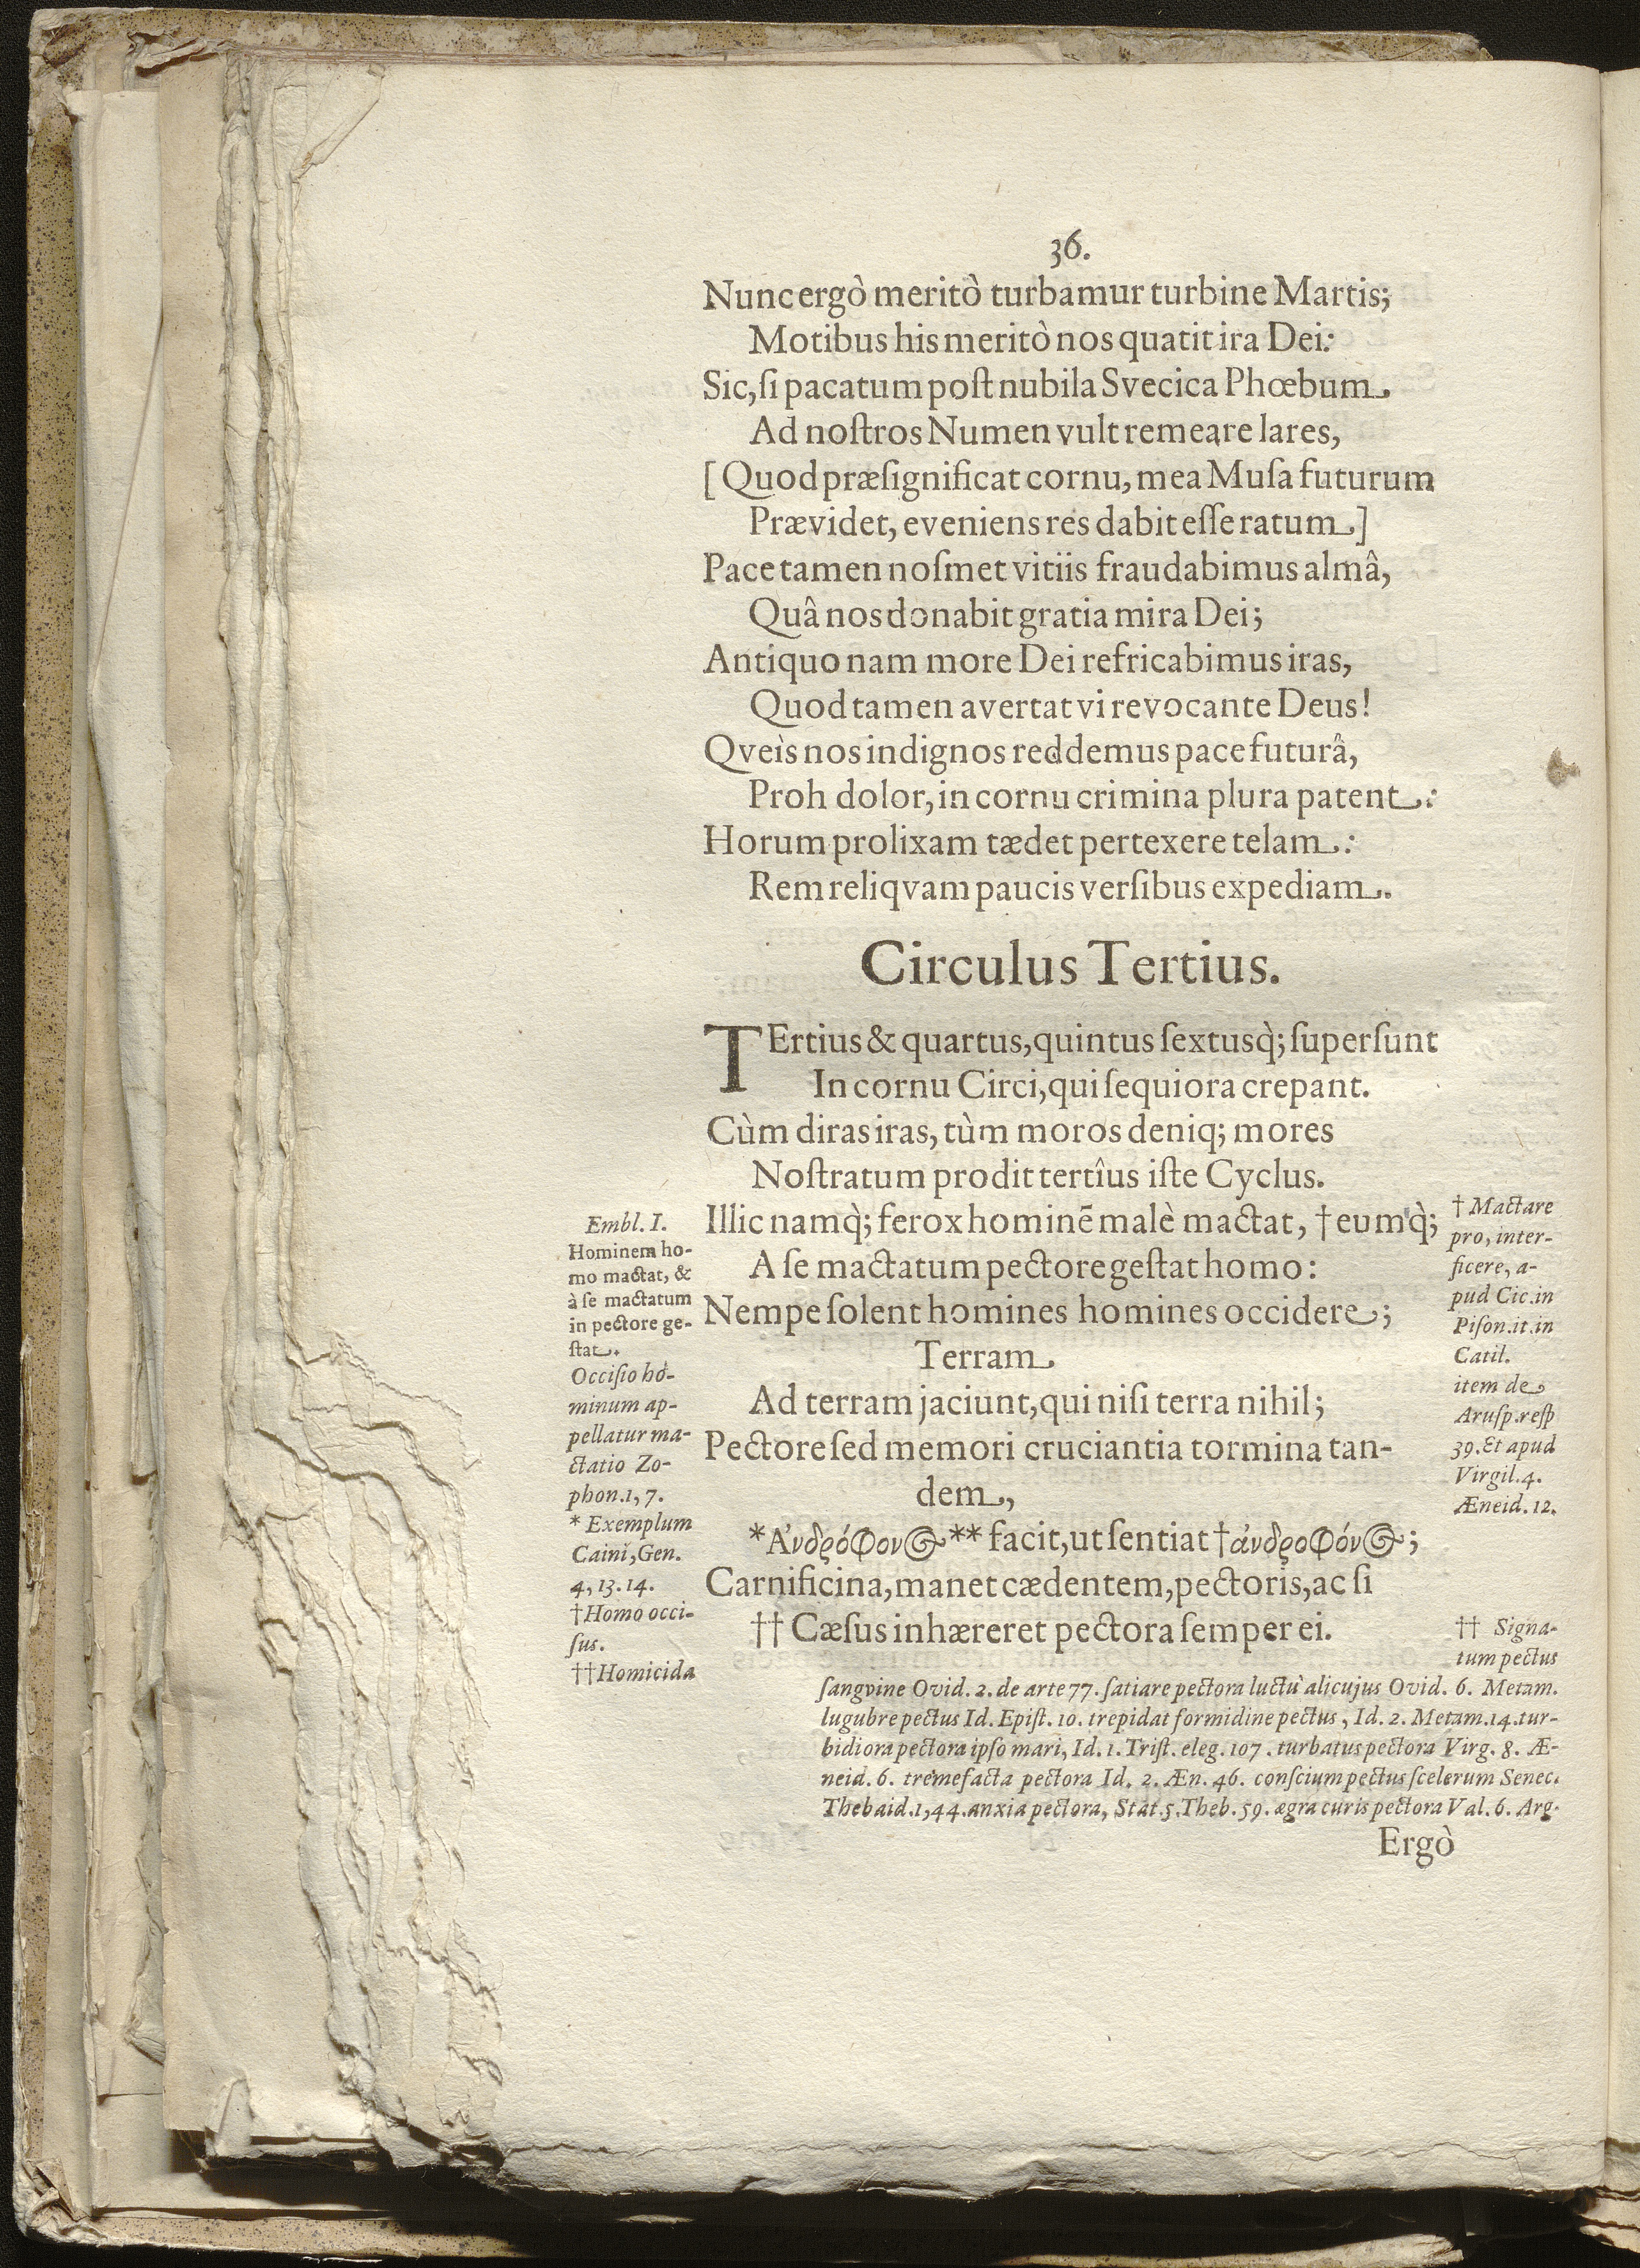 36.
Nunc ergò meritò turbamur turbine Martis;
Motibus his meritò nos quatit ira Dei:
Sic, ſi pacatum poſt nubila Svecica Phœbum
Ad noſtros Numen vult remeare lares,
[Quod præſignificat cornu, mea Muſa futurum
Prævidet, eveniens res dabit eſſe ratum]
Pace tamen noſmet vitiis fraudabimus almâ,
Quâ nos donabit gratia mira Dei;
Antiquo nam more Dei refricabimus iras,
Quod tamen avertat vi revocante Deus!
Qveìs nos indignos reddemus pace futurâ,
Proh dolor, in cornu crimina plura patent:
Horum prolixam tædet pertexere telam:
Rem reliqvam paucis verſibus expediam.
Circulus Tertius.
TErtius & quartus, quintus ſextusq̀; ſuperſunt
In cornu Circi, qui ſequiora crepant.
Cùm diras iras, tùm moros deniq; mores
Noſtratum prodit tertîus iſte Cyclus.
Illic namq̀; ferox hominẽ malè mactat, † eumq̀;
A ſe mactatum pectore geſtat homo:
Nempe ſolent homines homines occidere;
Terram
Ad terram jaciunt, qui niſi terra nihil;
Pectore ſed memori cruciantia tormina tan-
dem,
*Ἀνδρόφονος** facit, ut ſentiat †ἀνδροφόνος;
Carnificina, manet cædentem, pectoris, ac ſi
†† Cæſus inhæreret pectora ſemper ei.
Embl. I.
Hominem ho-
mo mactat, &
à ſe mactatum
in pectore ge-
ſtat.
Occiſio ho-
minum ap-
pellatur ma-
ctatio Zo-
phon. 1, 7.
* Exemplum
Caini, Gen.
4, 13. 14.
† Homo occi-
ſus.
†† Homicida
† Mactare
pro, inter-
ficere, a-
pud Cic. in
Piſon. it. in
Catil.
item de
Aruſp. reſp
39. Et apud
Virgil. 4.
Æneid. 12.
†† Signa-
tum pectus
ſangvine Ovid. 2. de arte 77. ſatiare pectora luctù alicujus Ovid. 6. Metam.
lugubre pectus Id. Epiſt. 10. trepidat formidine pectus, Id. 2. Metam. 14. tur-
bidiora pectora ipſo mari, Id. 1. Triſt. eleg. 107. turbatus pectora Virg. 8. Æ-
neid. 6. tremefacta pectora Id. 2. Æn. 46. conſcium pectus ſcelerum Senec.
Thebaid. 1, 44. anxia pectora, Stat. 5. Theb. 59. ægra curis pectora Val. 6. Arg.
Ergò